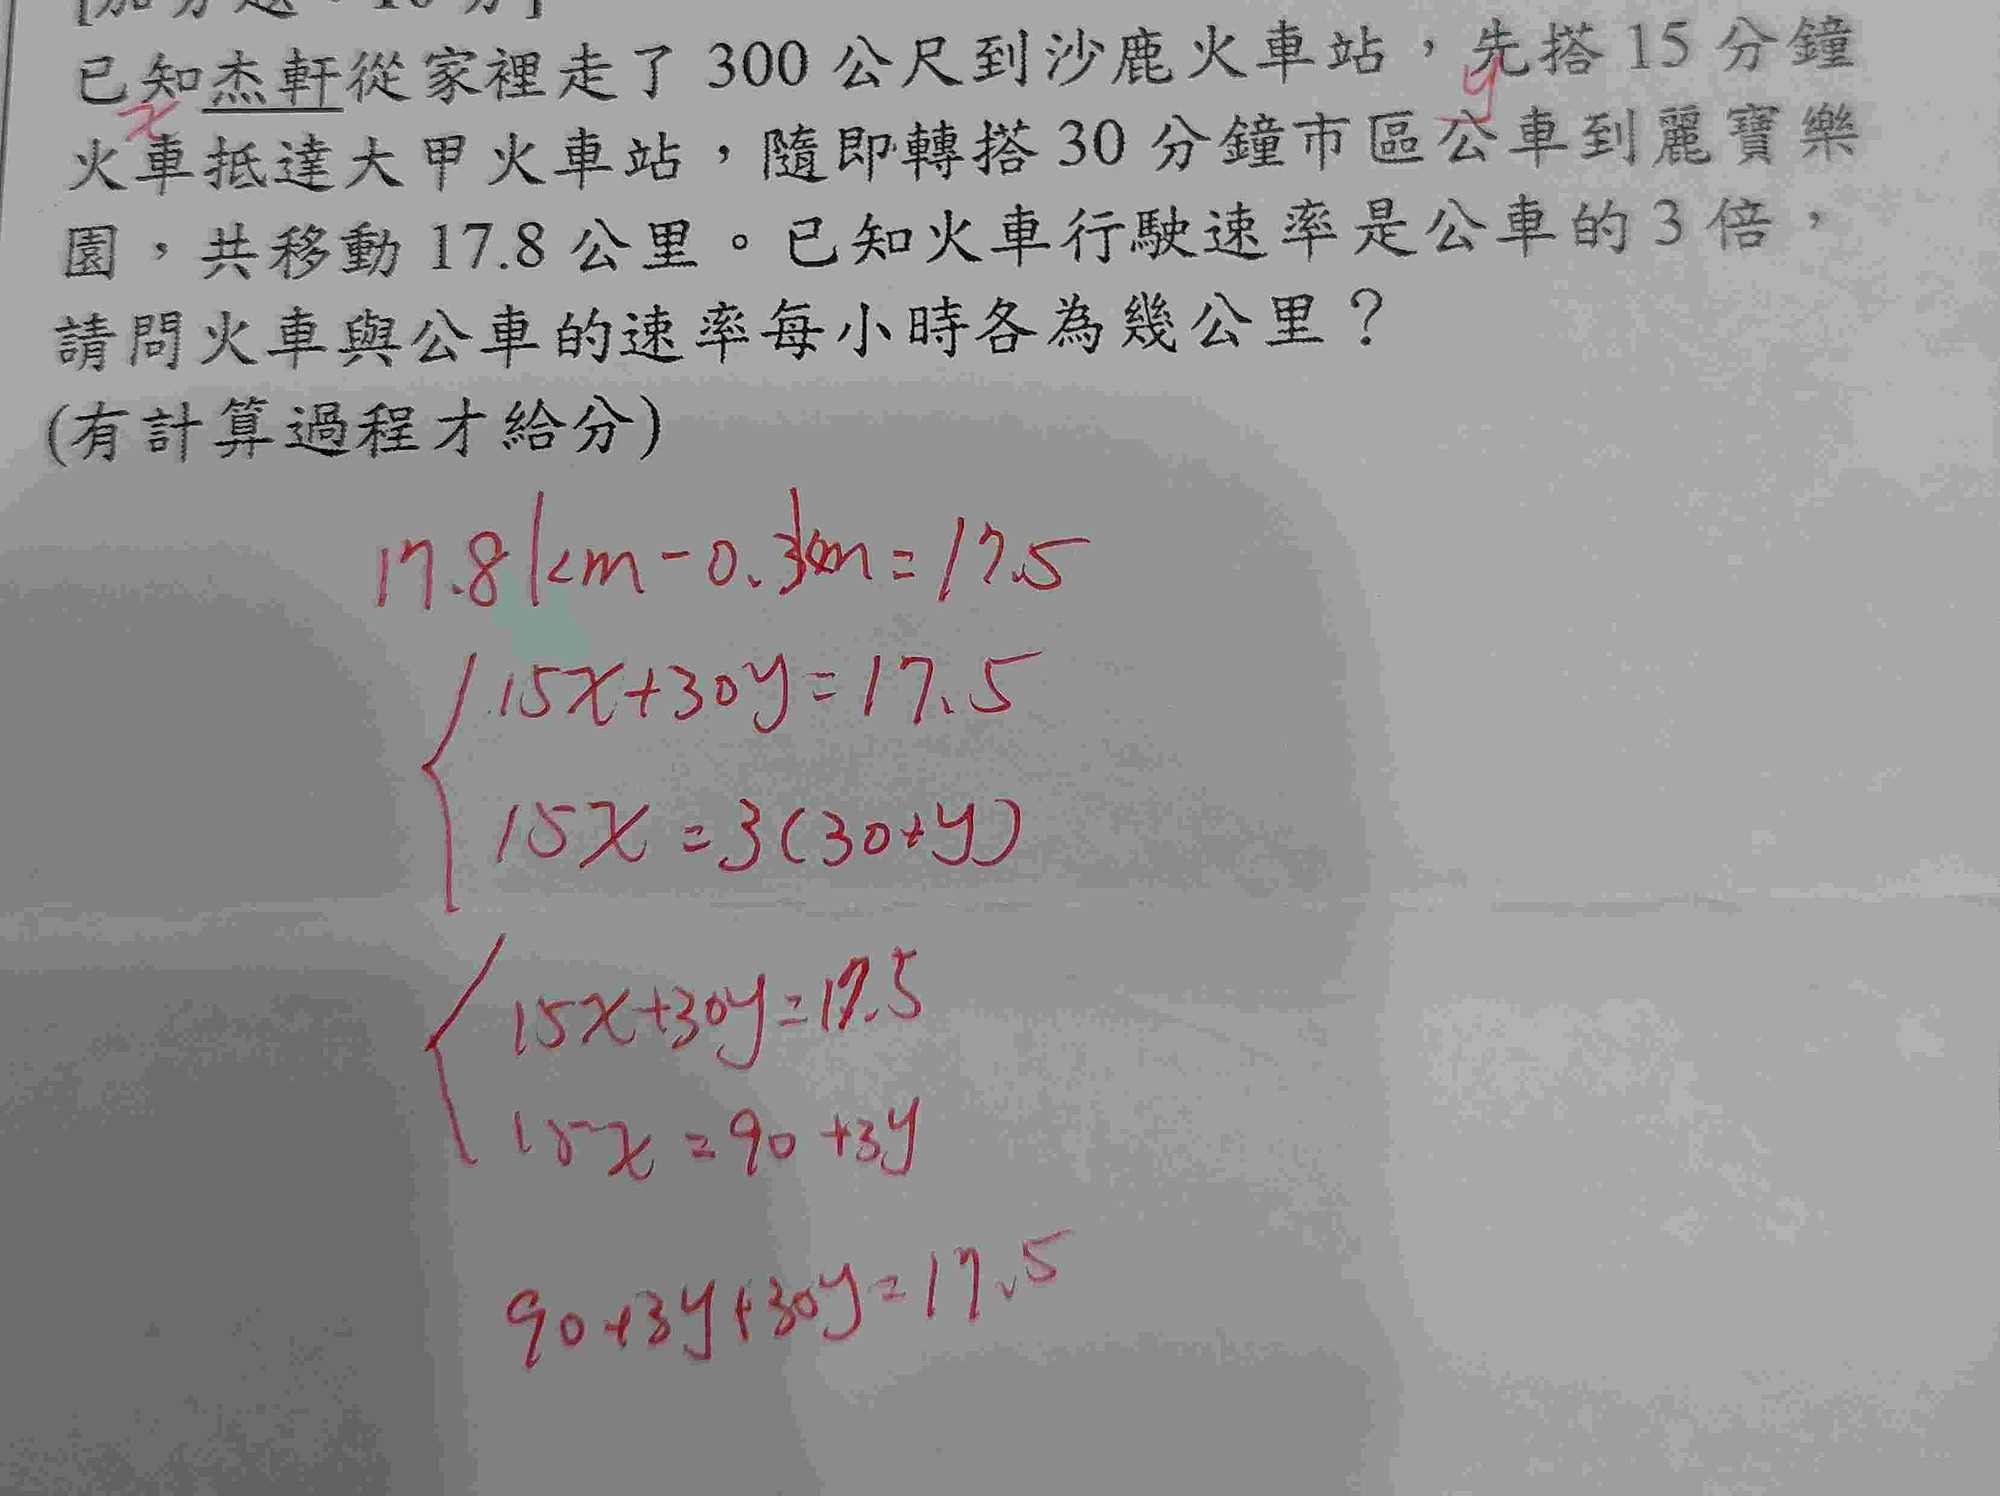 [加分題：10分]
已知杰軒從家裡走了 300 公尺到沙鹿火車站，先搭 15 分鐘
x
y
火車抵達大甲火車站，隨即轉搭 30 分鐘市區公車到麗寶樂
園，共移動 17.8 公里。已知火車行駛速率是公車的 3 倍，
請問火車與公車的速率每小時各為幾公里？
(有計算過程才給分)
17.8km-0.3km=17.5
15x+30y=17.5
15x=3(30+y)
15x+30y=17.5
15x=90+3y
90+3y+30y=17.5